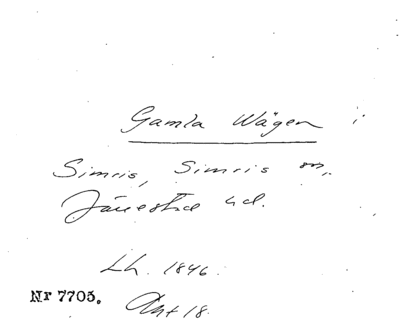 Gamla Wägen i
Simris, Simris sn,
Järrestad hd.
Lh. 1846.
Nr 7705. Akt 18.